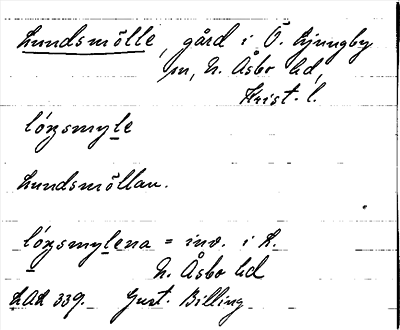 Lundsmölle, gård i Ö. Ljungby
sn, N. Åsbo hd,
Krist. l.
lózsmyle
Lundsmöllan.
lózsmylena = inv. i L.
N. Åsbo hd
LAL 339. Gust. Billing